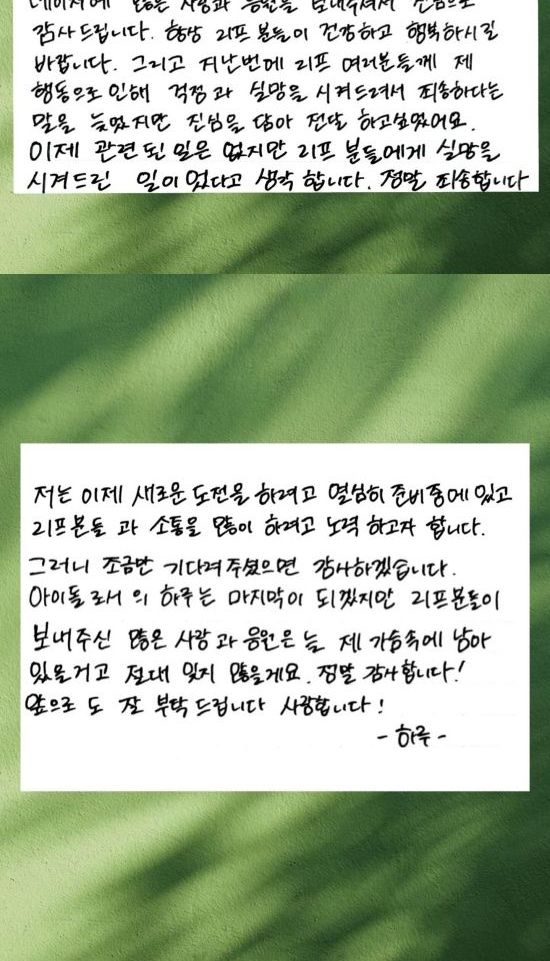 데이저에 많은 사랑과 응원을 보내주셔서 진심으로
감사드립니다. 항상 리프 분들이 건강하고 행복하시길
바랍니다. 그리고 지난번에 리프 여러분들께 제
행동으로 인해 걱정과 실망을 시켜드려서 죄송하다는
말을 늦었지만 진심을 담아 전달 하고싶었어요.
이제 관련된 일은 없지만 리프 분들에게 실망을
시켜드린 일이 었다고 생각 합니다. 정말 죄송합니다
저는 이제 새로운 도전을 하려고 열심히 준비중에 있고
리프분들 과 소통을 많이 하려고 노력 하고자 합니다.
그러니 조금만 기다려주셨으면 감사하겠습니다.
아이돌로서 의 하루는 마지막이 되겠지만 리프분들이
보내주신 많은 사랑과 응원은 늘 제 가슴속에 남아
있을거고 절대 잊지 않을게요. 정말 감사합니다!
앞으로 도 잘 부탁드립니다 사랑합니다!
- 하루 -